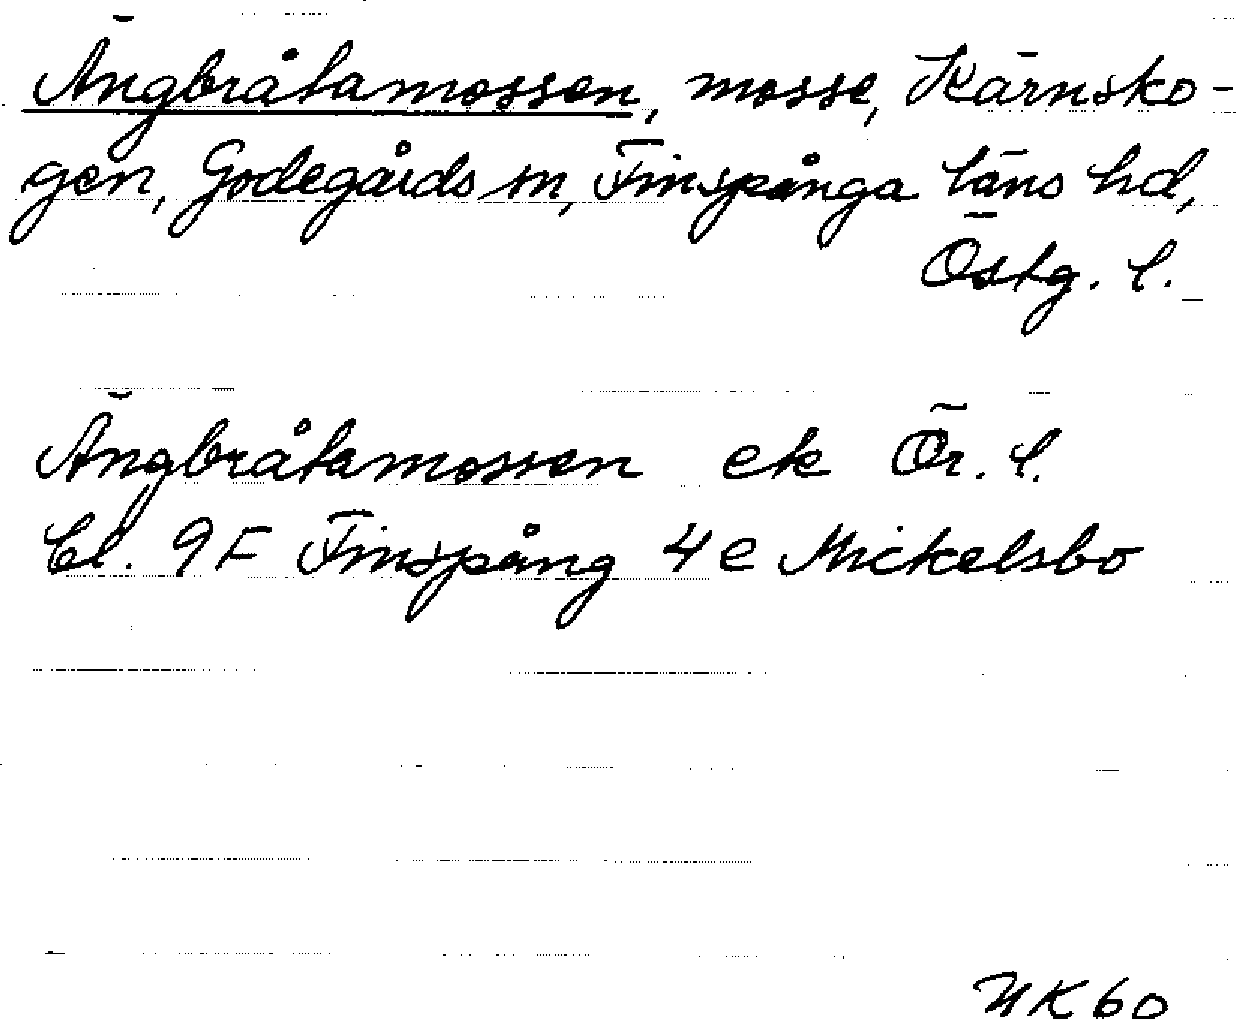 Ängbråtamossen, mosse, Kärnsko-
gen, Godegårds sn, Finspånga läns hd,
Östg. l.
Ängbråtamossen ek Ör. l.
bl. 9F Finspång 4e Mickelsbo
NK60